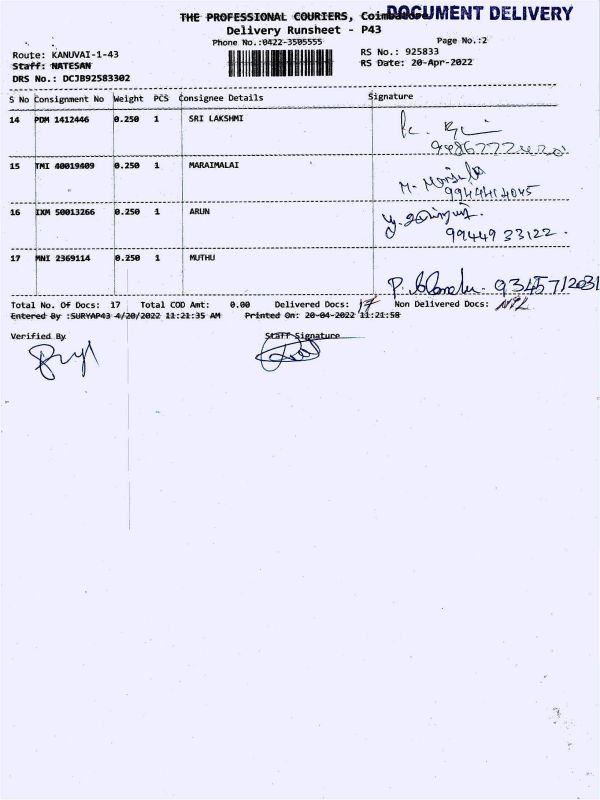 THE PROFESSIONAL COURIERS, Coimbatore
DOCUMENT DELIVERY
Delivery Runsheet - P43
Phone No.:0422-3505555
Page No.:2
Route: KANUVAI-1-43
RS No.: 925833
Staff: NATESAN
RS Date: 20-Apr-2022
DRS No.: DCJB92583302
S No Consignment No Weight PCS Consignee Details Signature
14 PDM 1412446 0.250 1 SRI LAKSHMI
15 TMI 40019409 0.250 1 MARAIMALAI
9944414045
16 IXM 50013266 0.250 1 ARUN
99449 33122.
17 MNI 2369114 0.250 1 MUTHU
Total No. Of Docs: 17 Total COD Amt: 0.00 Delivered Docs: 17 Non Delivered Docs: NIL
Entered By :SURYAP43 4/20/2022 11:21:35 AM Printed On: 20-04-2022 11:21:58
Verified By Staff Signature